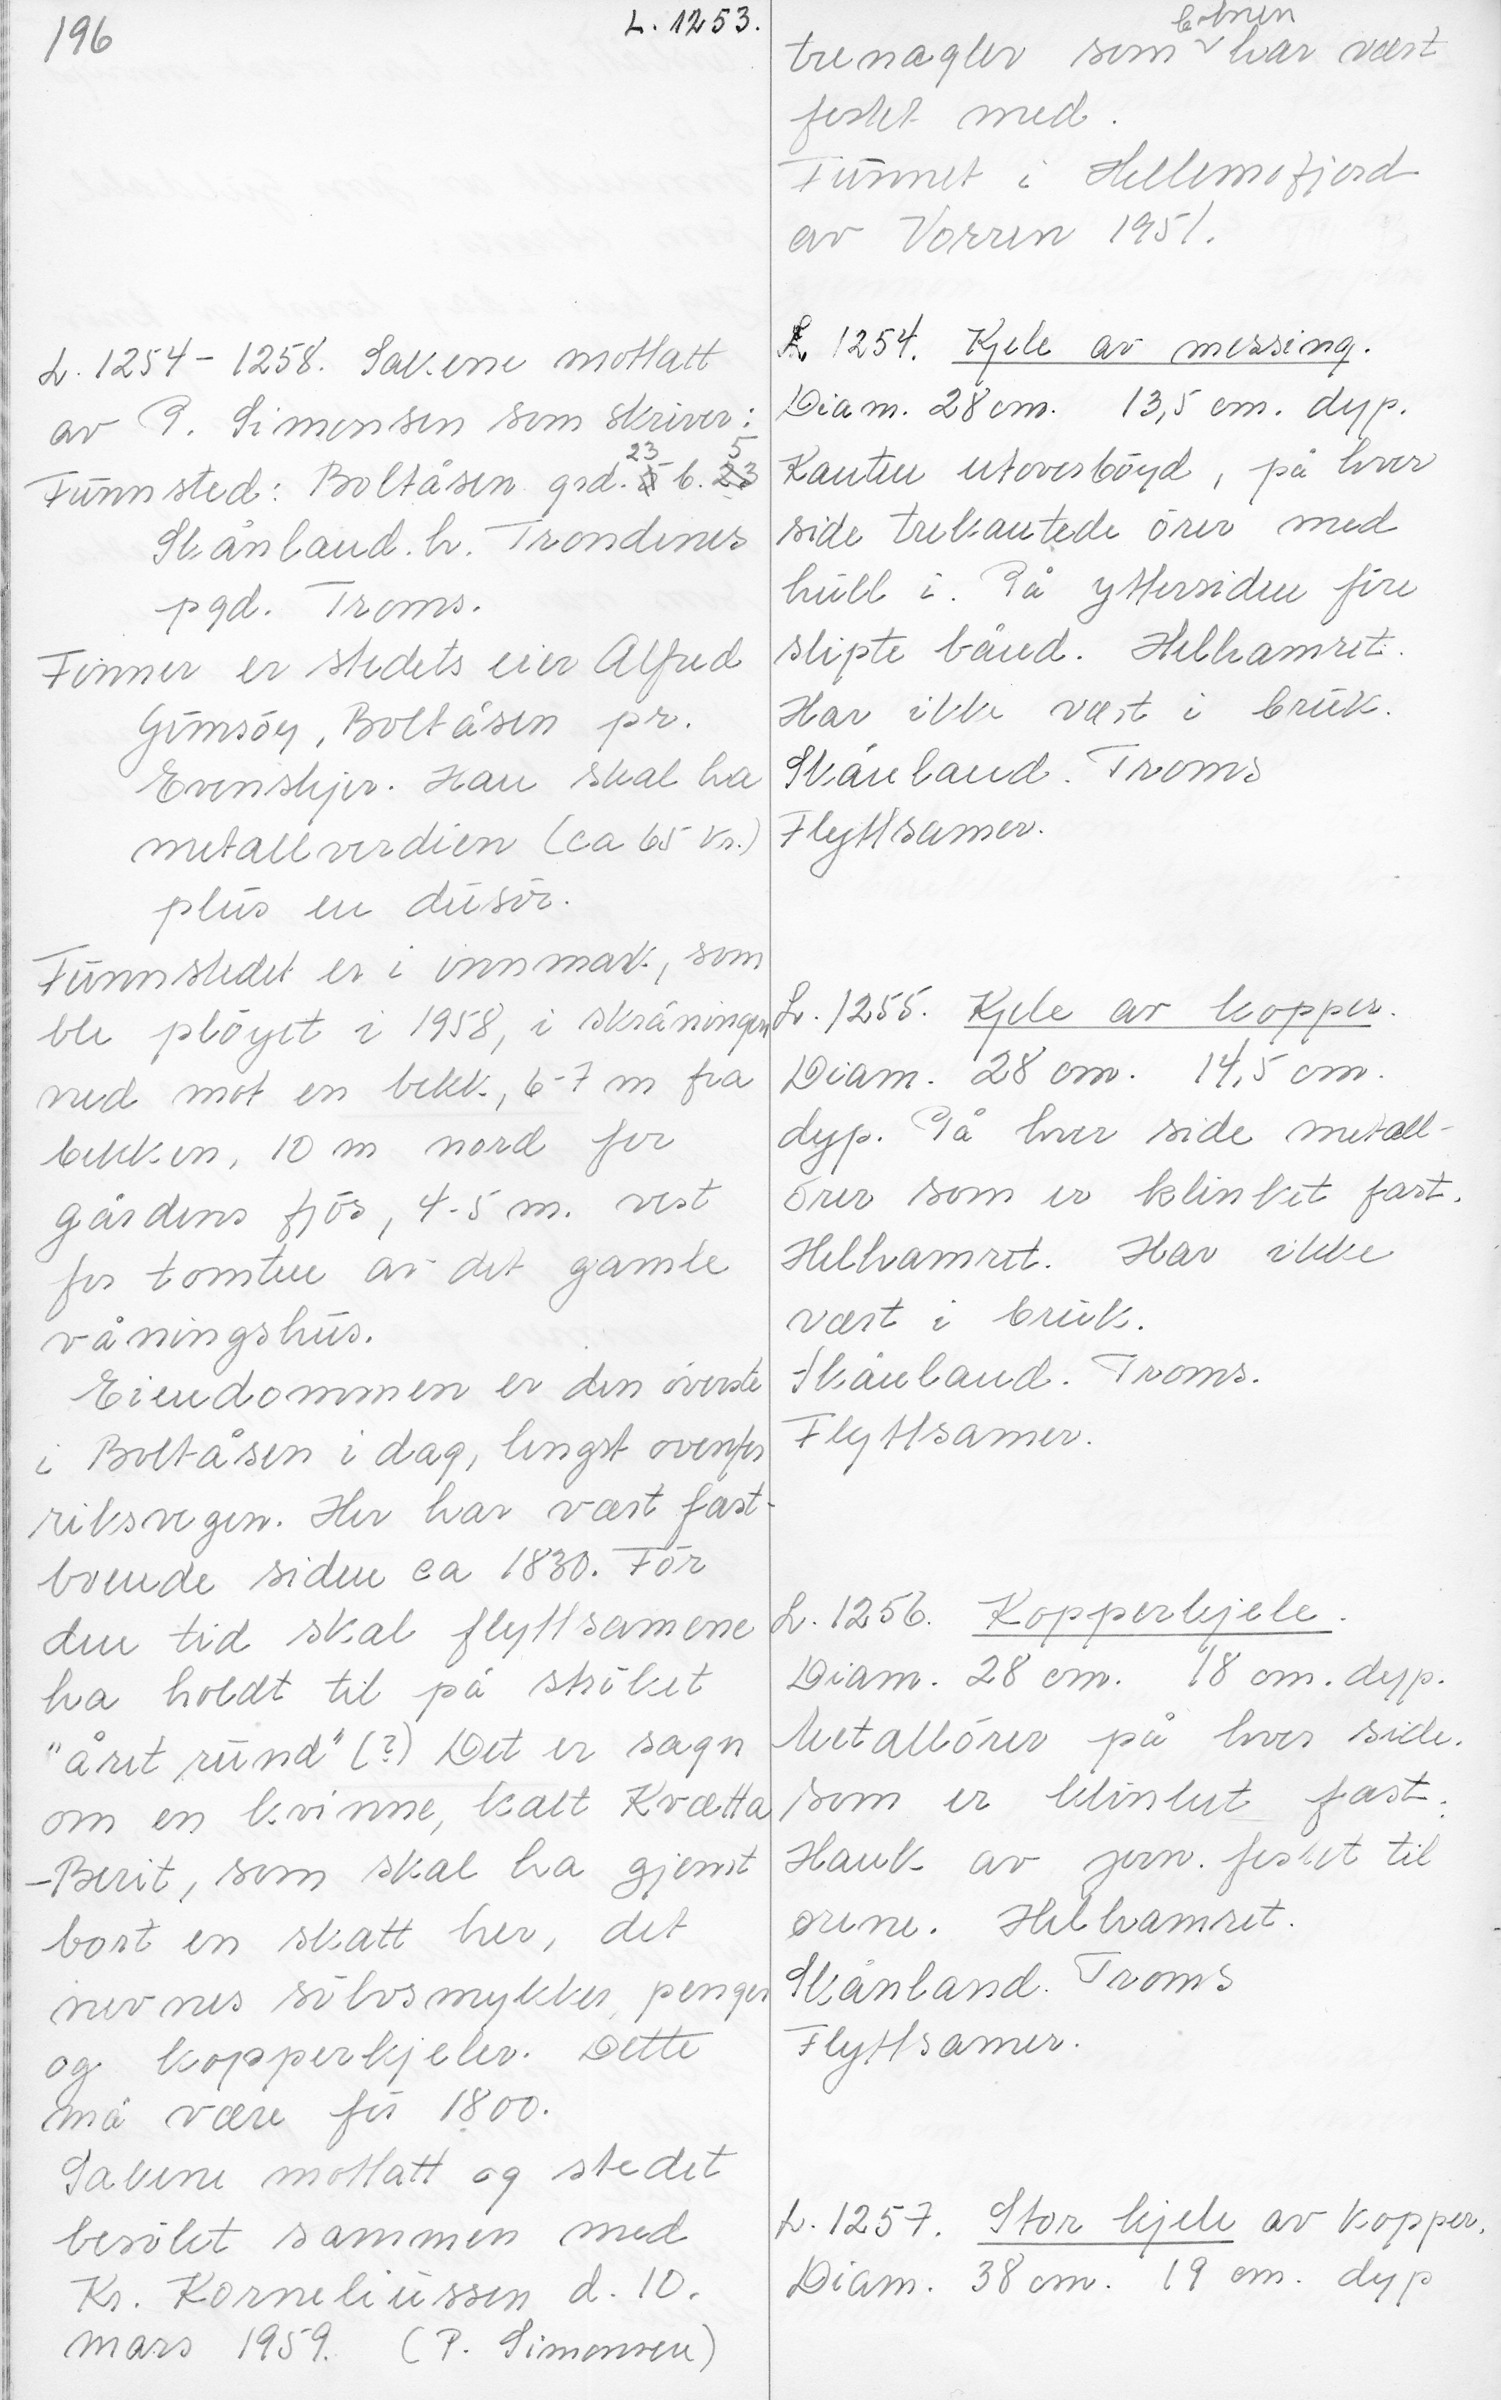 196
L. 1253.
L. 1254 - 1258. Sakene mottatt
av P. Simonsen som skriver:
Funnsted: Boltåsen grd. 23 b. 5
Skånland. h. Trondenes
pgd. Troms.
Finner er stedets eier Alfred
Gimsöy, Boltåsen pr.
Evenskjer. Han skal ha
metallverdien (ca 65 kr.)
plus en dusör.
Funnstedet er i innmark, som
ble plöyet i 1958, i skråningen
ned mot en bekk, 6-7 m fra
bekken, 10 m nord for
gårdens fjös, 4-5 m. vest
for tomten av det gamle
våningshus.
Eiendommen er den överste
i Boltåsen i dag, lengst ovenfor
riksvegen. Her har vært fast-
boende siden ca 1830. För
den tid skal flyttsamene
ha holdt til på ströket
"året rund" (?) Det er sagn
om en kvinne, kalt Kvætta
-Berit, som skal ha gjemt
bort en skatt her, det
nevnes sölvsmykker, penger
og kopperkjeler. Dette
må være för 1800.
Sakene mottatt og stedet
besökt sammen med
Kr. Korneliussen d. 10.
mars 1959. (P. Simonsen)
trenagler som botnen har vært
festet med.
Funnet i Hellemofjord
av Vorren 1951.
L 1254. Kjele av messing.
Diam. 28 cm. 13,5 cm. dyp.
Kanten utoverböyd, på hver
side trekantede örer med
hull i. På yttersiden fire
slipte bånd. Helhamret.
Har ikke vært i bruk.
Skånland. Troms
Flyttsamer.
L. 1255. Kjele av kopper.
Diam. 28 cm. 14,5 cm.
dyp. På hver side metall-
örer som er klinket fast.
Helhamret. Har ikke
vært i bruk.
Skånland. Troms.
Flyttsamer.
L. 1256. Kopperkjele.
Diam. 28 cm. 18 cm. dyp.
Metallörer på hver side.
som er klinket fast.
Hank av jern. festet til
örene. Helhamret.
Skånland. Troms
Flyttsamer.
L. 1257. Stor kjele av kopper.
Diam. 38 cm. 19 cm. dyp